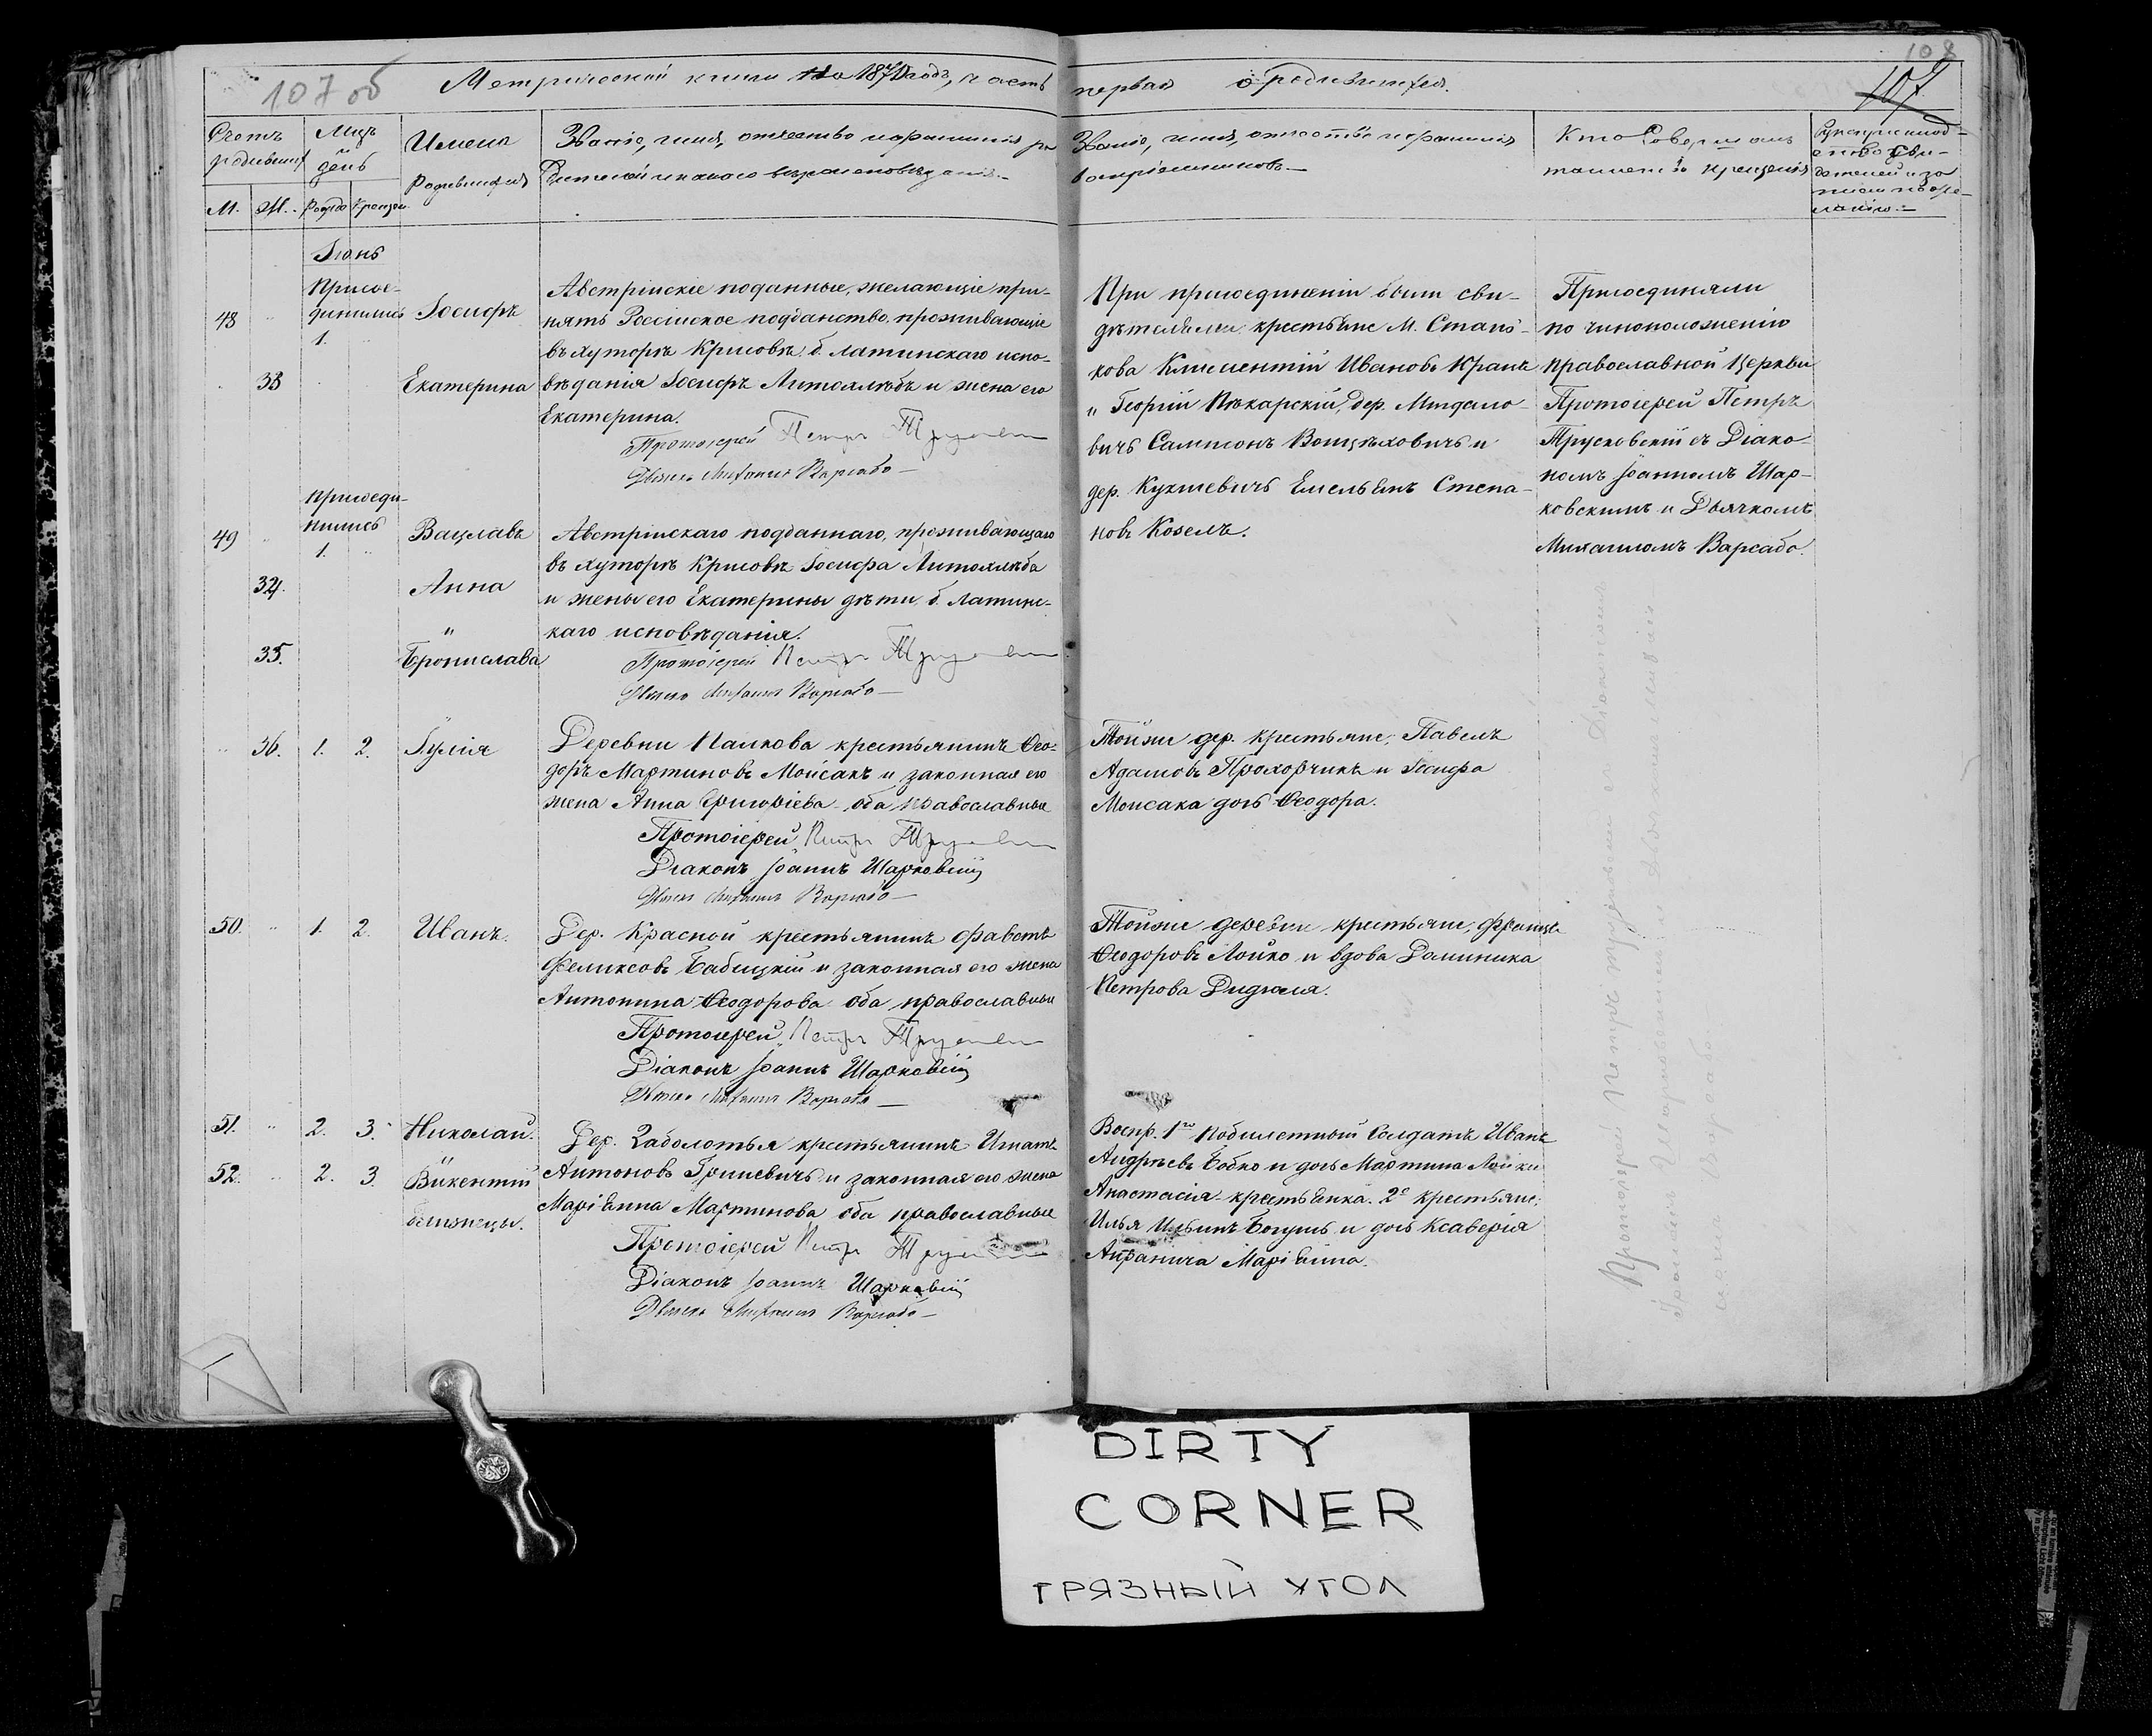 107 об
Метрической книги на 187 годъ, часть
первая о родившихся.
108
107
Счетъ
родившихся
Мцъ
день
Имена
родившихся
Званіе, имя, отчество и фамилія ро
дителей и какого вѣроисповѣданія.
Званіе, имя, отчество и фамилія
воспріемниковъ.
Кто совершалъ
таинство крещенія
Рукоприклад-
ство сви-
дѣтелей
М. Ж. Рожд Крещен
Іюнь
48
Присое-
динились
1.
Іосифъ
33
Екатерина
Австрійскіе поданные, желающіе при-
нять Россійское подданство, проживающіе
въ хуторѣ Крисовѣ, б. латинскаго испо-
вѣданія Іосифъ Литохлѣбъ и жена его
Екатерина.
Протоіерей Петръ
Варсабо
При присоединеніи были сви-
дѣтелями крестьяне М. Стань-
кова Климентій Ивановъ Кранъ
" Георгій Пѣкарскій, дер.
Сампсонъ Войцѣховичъ и
дер. Кухшевичъ Емельянъ Степа-
новъ Козелъ.
Присоединяли
по чиноположенію
православной Церкви
Протоіерей Петръ
Трусковскій съ Діако-
номъ Іоанномъ Шар-
ковскимъ и Дьячкомъ
Михаиломъ Варсабо.
49
Присоеди-
нились
1.
Вацлавъ
34.
Анна
"
35.
Бронислава
Австрійскаго подданнаго, проживающаго
въ хуторѣ Крисовѣ Іосифа Литохлѣба
и жены его Екатерины дѣти, б. Латинс-
каго исповѣданія.
Протоіерей Петръ
Варсабо
36. 1. 2. Іулія
Деревни Панкова крестьянинъ Ѳео-
доръ Мартиновъ Мойсакъ и законная его
жена Анна Григоріева оба православные
Протоіерей Петръ
Діаконъ Іоаннъ Шарковскій
Варсабо
Тойже дер. крестьяне, Павелъ
Адамовъ Прохорчикъ и Іосифа
Мойсака дочь Ѳеодора.
50. 1. 2. Иванъ.
Дер. Красной крестьянинъ Фавстъ
Феликсовъ Бабицкій и законная его жена
Антонина Ѳеодорова оба православные
Протоіерей Петръ
Діаконъ Іоаннъ Шарковскій
Варсабо
Тойже деревни крестьяне,
Ѳеодоровъ Лойко и вдова Доминика
Петрова
51. 2. 3. Николай.
52. 2. 3. Викентій
близнецы.
Дер. Заболотья крестьянинъ Игнатъ
Антоновъ Гриневичъ и законная его жена
Маріанна Мартинова оба православные
Протоіерей Петръ
Діаконъ Іоаннъ Шарковскій
Варсабо
Воспр. 1го Побилетный Солдатъ Иванъ
Андреевъ Бобко и дочь Мартина Лойки
Анастасія крестьянка. 2е крестьяне:
Илья Ильинъ Богушъ и дочь Ксаверія
Маріанна.
DIRTY
CORNER
ГРЯЗНЫЙ УГОЛ